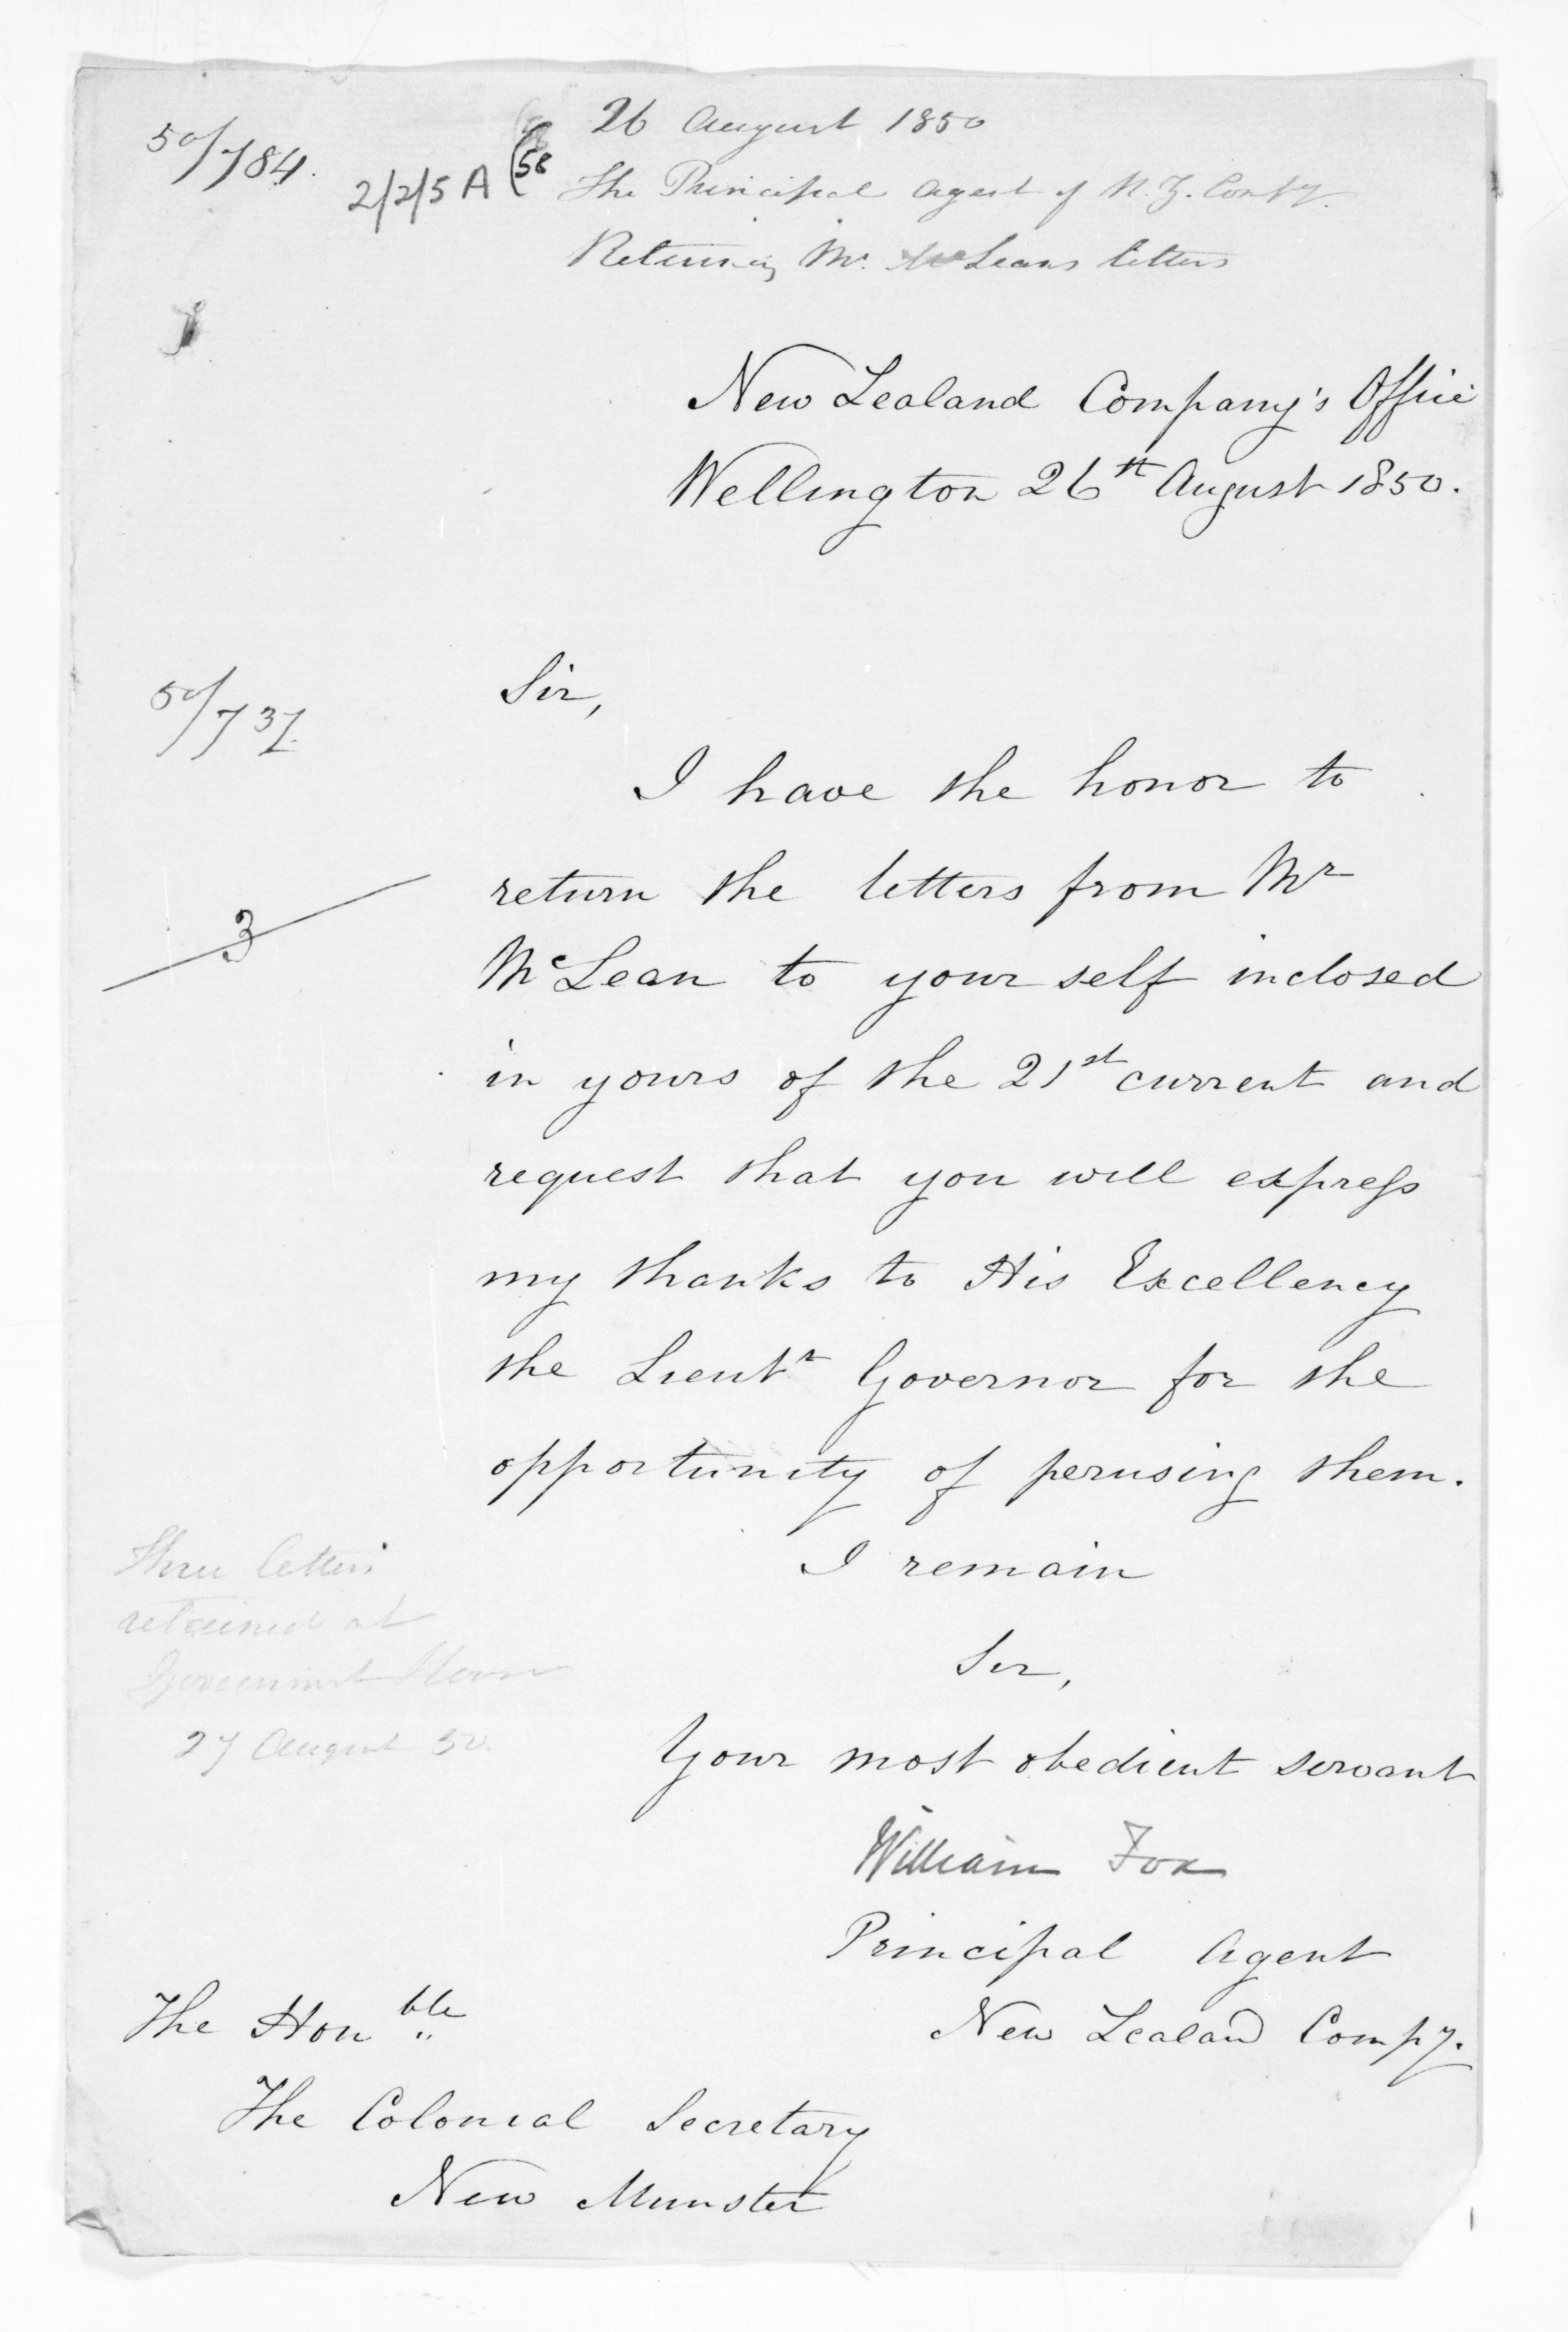 50/784.
2/2/5 A (58
26 August 1850
The Principal Agent of N.Z. Compy.
Returning Mr. McLeans letters
New Zealand Company's Office
Wellington 26th August 1850.
50/737.
Sir,
I have the honor to
return the letters from Mr
McLean to your self inclosed
3
in yours of the 21st current and
request that you will express
my thanks to His Excellency
the Lieutt Governor for the
opportunity of perusing them.
I remain
Sir,
Your most obedient servant
Three letters
retained at
Government House
27 August 50.
William Fox
Principal Agent
New Zealand Compy.
The Honble
The Colonial Secretary
New Munster